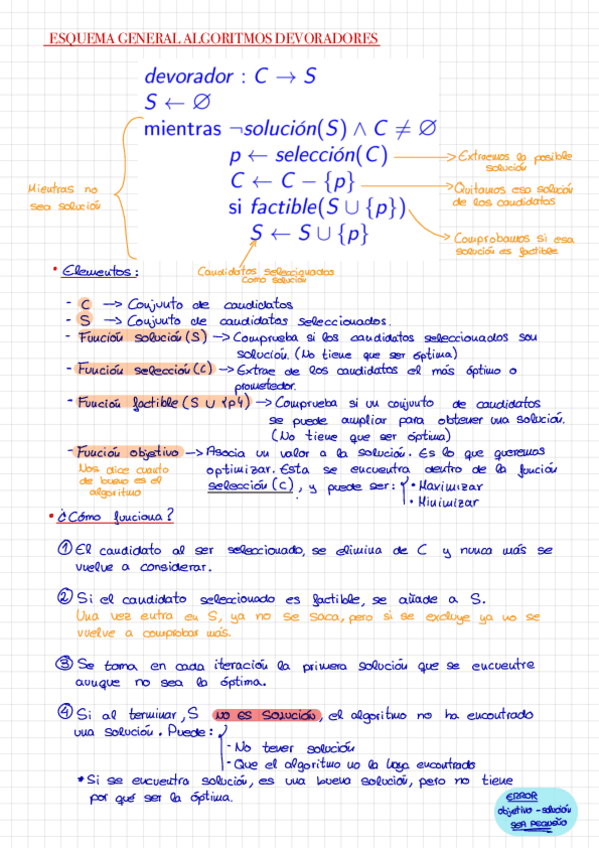 ESQUEMA GENERAL ALGORITMOS DEVORADORES
devorador : C → S
S ← ∅
mientras ¬solución(S) ∧ C ≠ ∅
p ← selección(C)
Extraemos la posible
solución
C ← C − {p}
Quitamos esa solución
de los candidatos
Mientras no
sea solución
si factible(S ∪ {p})
S ← S ∪ {p}
Comprobamos si esa
solución es factible
• Elementos:
Candidatos seleccionados
como solución
- C → Conjunto de candidatos
- S → Conjunto de candidatos seleccionados.
- Función solución(S) → Comprueba si los candidatos seleccionados son
solución. (No tiene que ser óptima)
- Función selección(C) → Extrae de los candidatos el más óptimo o
prometedor.
- Función factible (S ∪ {p}) → Comprueba si un conjunto de candidatos
se puede ampliar para obtener una solución.
(No tiene que ser óptima)
- Función objetivo → Asocia un valor a la solución. Es lo que queremos
Nos dice cuanto
de bueno es el
algoritmo
optimizar. Esta se encuentra dentro de la función
selección(C), y puede ser: • Maximizar
• Minimizar
• ¿Cómo funciona?
① El candidato al ser seleccionado, se elimina de C y nunca más se
vuelve a considerar.
② Si el candidato seleccionado es factible, se añade a S.
Una vez entra en S, ya no se saca, pero si se excluye ya no se
vuelve a comprobar más.
③ Se toma en cada iteración la primera solución que se encuentre
aunque no sea la óptima.
④ Si al terminar, S NO ES SOLUCIÓN, el algoritmo no ha encontrado
una solución. Puede:
- No tener solución
- Que el algoritmo no la haya encontrado
* Si se encuentra solución, es una buena solución, pero no tiene
por qué ser la óptima.
ERROR
objetivo - solución
SER PEQUEÑO